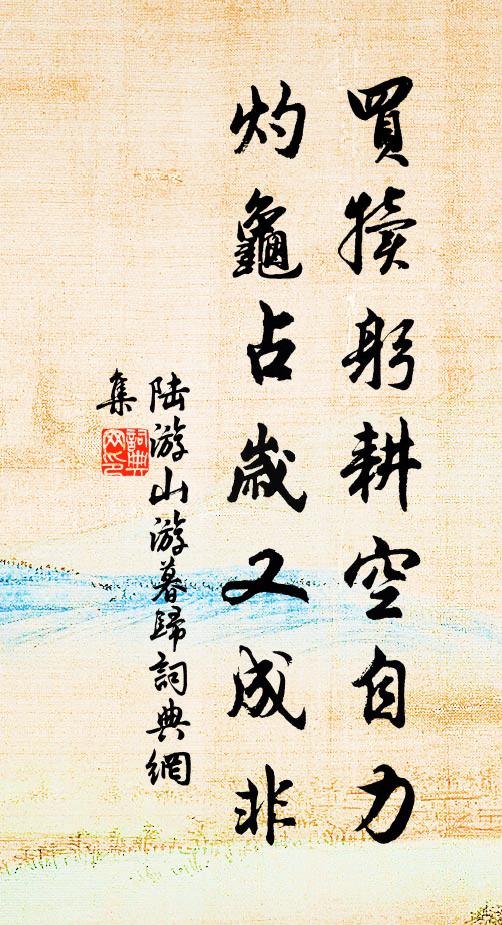 買犢躬耕空自力
灼龜占歲又成非
陆游山游暮歸詞典網
集
詞典
网印